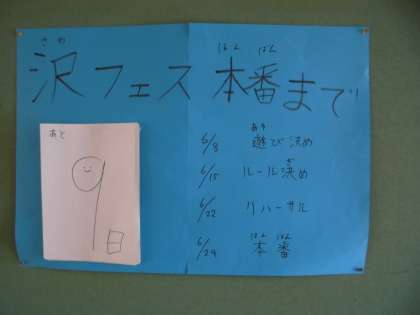 さわ ほん ばん
沢フェス本番まで
あと
9日
あそ
6/8 遊び決め
ぎ
6/15 ルール決め
6/22 リハーサル
ほん ばん
6/29 本番